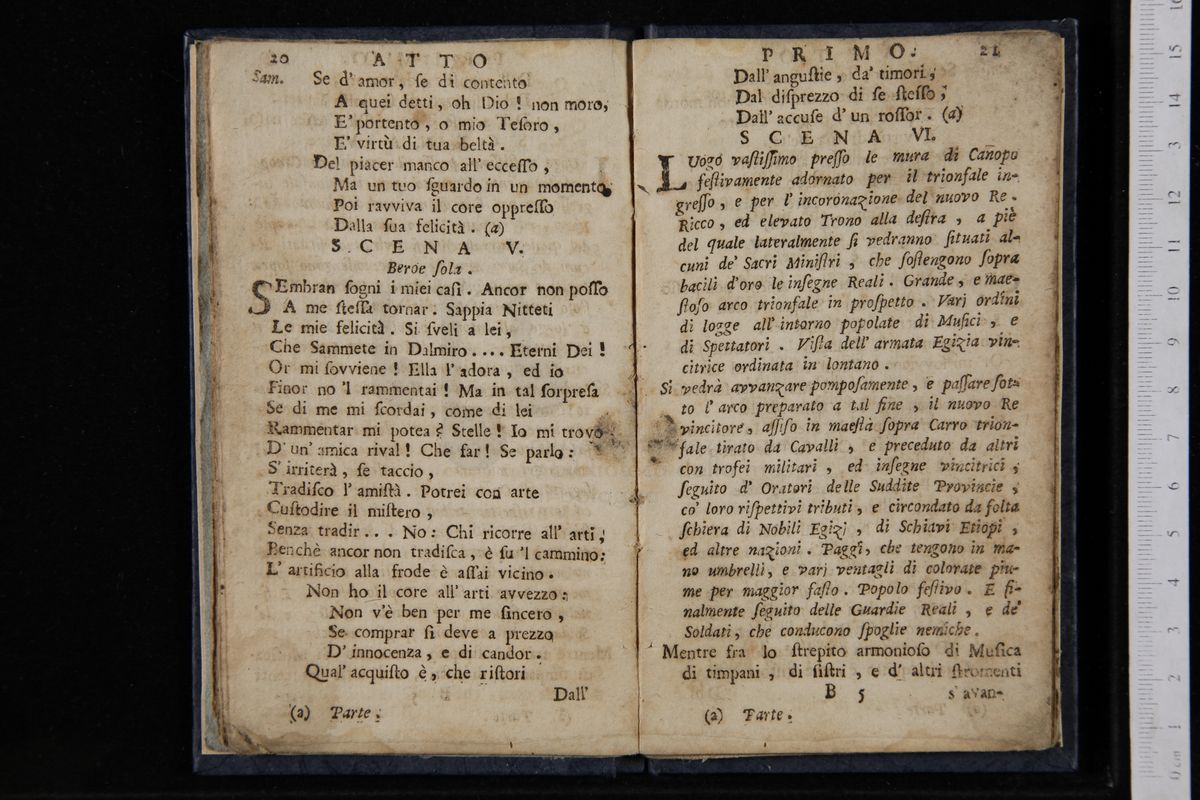 20 ATTO
Sam. Se d'amor, ſe di contento
A quei detti, oh Dio! non moro,
E' portento, o mio Teſoro,
E' virtù di tua beltà.
Del piacer manco all' ecceſſo,
Ma un tuo ſguardo in un momento
Poi ravviva il core oppreſſo
Dalla ſua felicità. (a)
SCENA V.
Beroe ſola.
SEmbran ſogni i miei caſi. Ancor non poſſo
A me ſteſſa tornar. Sappia Nitteti
Le mie felicità. Si ſveli a lei,
Che Sammete in Dalmiro.... Eterni Dei!
Or mi ſovviene! Ella l'adora, ed io
Finor no 'l rammentai! Ma in tal ſorpreſa
Se di me mi ſcordai, come di lei
Rammentar mi potea? Stelle! Io mi trovo
D' un' amica rival! Che far! Se parlo:
S' irriterà, ſe taccio,
Tradiſco l' amiſtà. Potrei con arte
Cuſtodire il miſtero,
Senza tradir... No: Chi ricorre all' arti,
Benchè ancor non tradiſca, è ſu 'l cammino:
L' artificio alla frode è aſſai vicino.
Non ho il core all' arti avvezzo:
Non v'è ben per me ſincero,
Se comprar ſi deve a prezzo
D' innocenza, e di candor.
Qual' acquiſto è, che riſtori
Dall'
(a) Parte.
PRIMO. 21
Dall' anguſtie, da' timori,
Dal diſprezzo di ſe ſteſſo,
Dall' accuſe d' un roſſor. (a)
SCENA VI.
LUogo vaſtiſſimo preſſo le mura di Canopo
feſtivamente adornato per il trionfale in-
greſſo, e per l' incoronazione del nuovo Re.
Ricco, ed elevato Trono alla deſtra, a piè
del quale lateralmente ſi vedranno ſituati al-
cuni de' Sacri Miniſtri, che ſoſtengono ſopra
bacili d'oro le inſegne Reali. Grande, e mae-
ſtoſo arco trionfale in proſpetto. Varj ordini
di logge all' intorno popolate di Muſici, e
di Spettatori. Viſta dell' armata Egizia vin-
citrice ordinata in lontano.
Si vedrà avvanzare pompoſamente, e paſſare ſot-
to l' arco preparato a tal fine, il nuovo Re
vincitore, aſſiſo in maeſtà ſopra Carro trion-
fale tirato da Cavalli, e preceduto da altri
con trofei militari, ed inſegne vincitrici,
ſeguito d' Oratori delle Suddite Provincie,
co' loro riſpettivi tributi, e circondato da folta
ſchiera di Nobili Egizj, di Schiavi Etiopi,
ed altre nazioni. Paggi, che tengono in ma-
no umbrelli, e varj ventagli di colorate piu-
me per maggior faſto. Popolo feſtivo. E fi-
nalmente ſeguito delle Guardie Reali, e de'
Soldati, che conducono ſpoglie nemiche.
Mentre fra lo ſtrepito armonioſo di Muſica
di timpani, di ſiſtri, e d' altri ſtromenti
B 5 s' avan-
(a) Parte.
15
14
13
12
11
10
9
8
7
6
5
4
3
2
1
0 cm